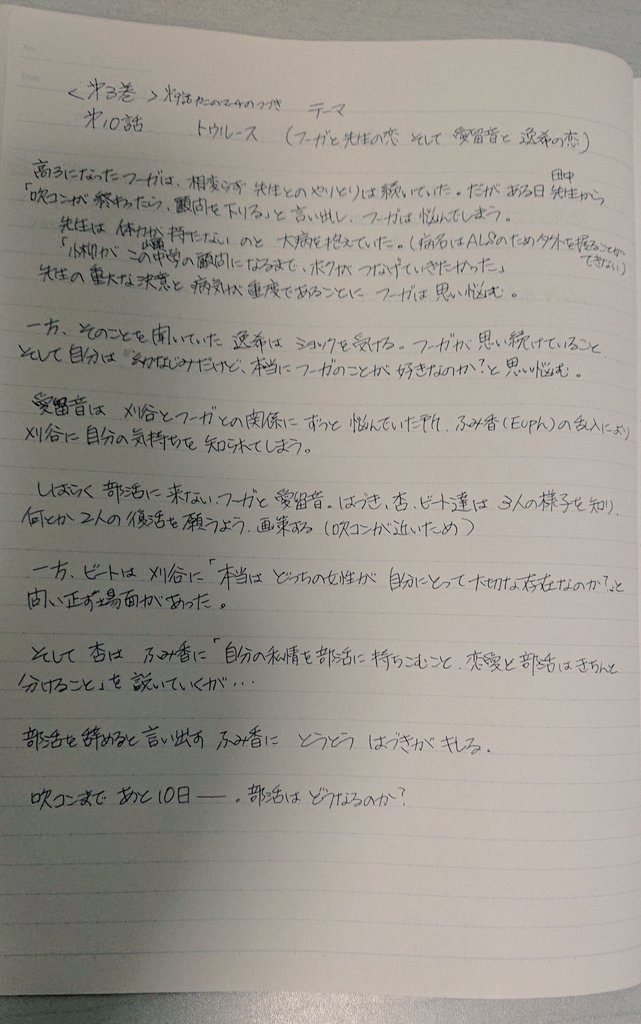 <第3巻> 第9話 のつづき テーマ
第10話 トゥルース (フーガと先生の恋 そして 愛留音と 逸希の恋)
高3になったフーガは、相変らず 先生とのやりとりは続いていた。だが ある日 田中先生から
「吹コンが 終わったら、顧問を下りる」と 言い出し、フーガは 悩んでしまう。
先生は 体力が 持たない のと 大病を抱えていた。(病名はALSのため タクトを握ることができない)
「小柳が この中学の顧問になるまで、ボクが つなげていきたかった」
先生の 重大な決意と 病気が 重度であることに フーガは 思い悩む。
一方、そのことを 聞いていた 逸希は ショックを 受ける。フーガが 思い続けていること
そして 自分は 幼なじみだけど、本当に フーガのことが 好きなのか?と 思い悩む。
愛留音は 刈谷と フーガとの関係に ずっと 悩んでいた所、ふみ香(Euph)の乱入により
刈谷に 自分の気持ちを 知られてしまう。
しばらく 部活に 来ない フーガと 愛留音。はづき、杏、ビート達は 3人の様子を 知り、
何とか 2人の 復活を 願うよう、画策する(吹コンが近いため)
一方、ビートは 刈谷に「本当は どっちの女性が 自分にとって 大切な存在なのか?」と
問い正す場面が あった。
そして 杏は ふみ香に「自分の私情を 部活に 持ちこむこと、恋愛と 部活は きちんと
分けること」を 説いていくが…
部活を辞めると 言い出す ふみ香に とうとう はづきが キレる。
吹コンまで あと10日――。部活は どうなるのか?